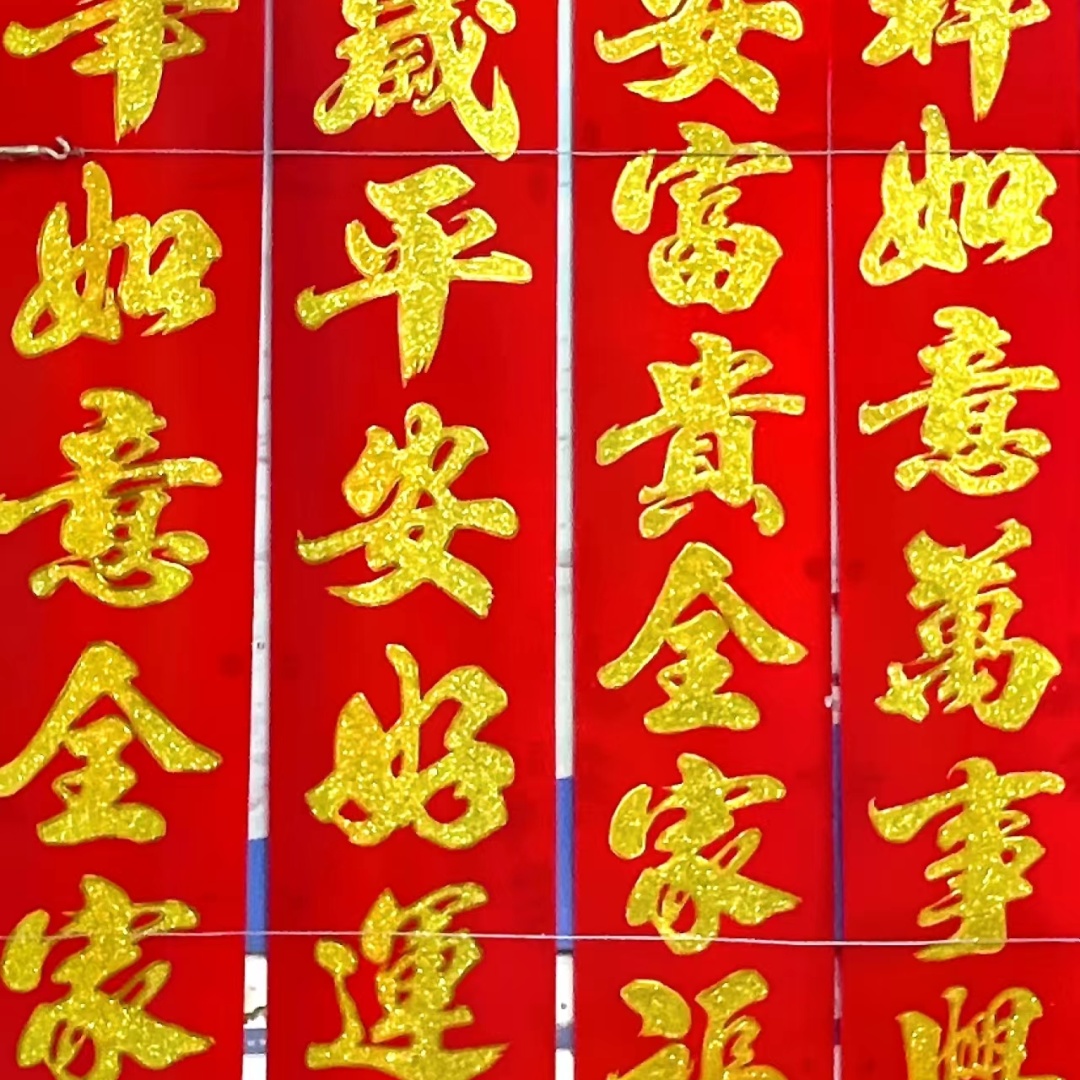 祥如意萬事興
安富貴全家福
歲平安好運
如意全家